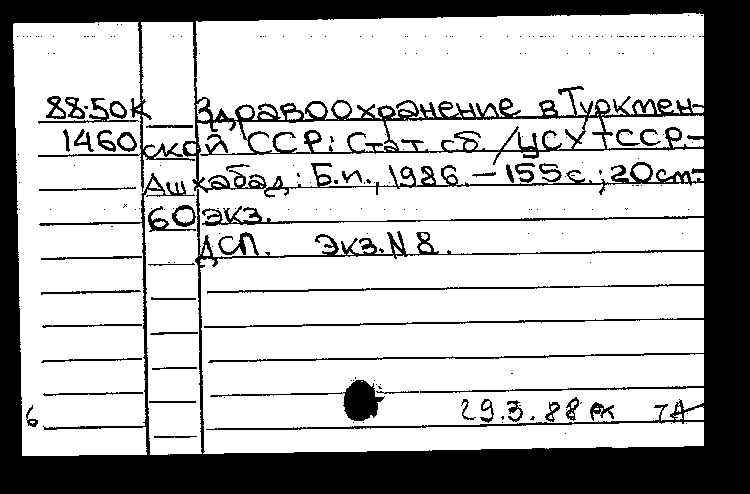 88-50К Здравоохранение в Туркмен-
1460 ской ССР: Стат. сб. / ЦСУ ТССР.-
Ашхабад: Б.и., 1986. - 155 с.; 20 см.-
60 экз.
ДСП. Экз. N 8.
6 29.3.88